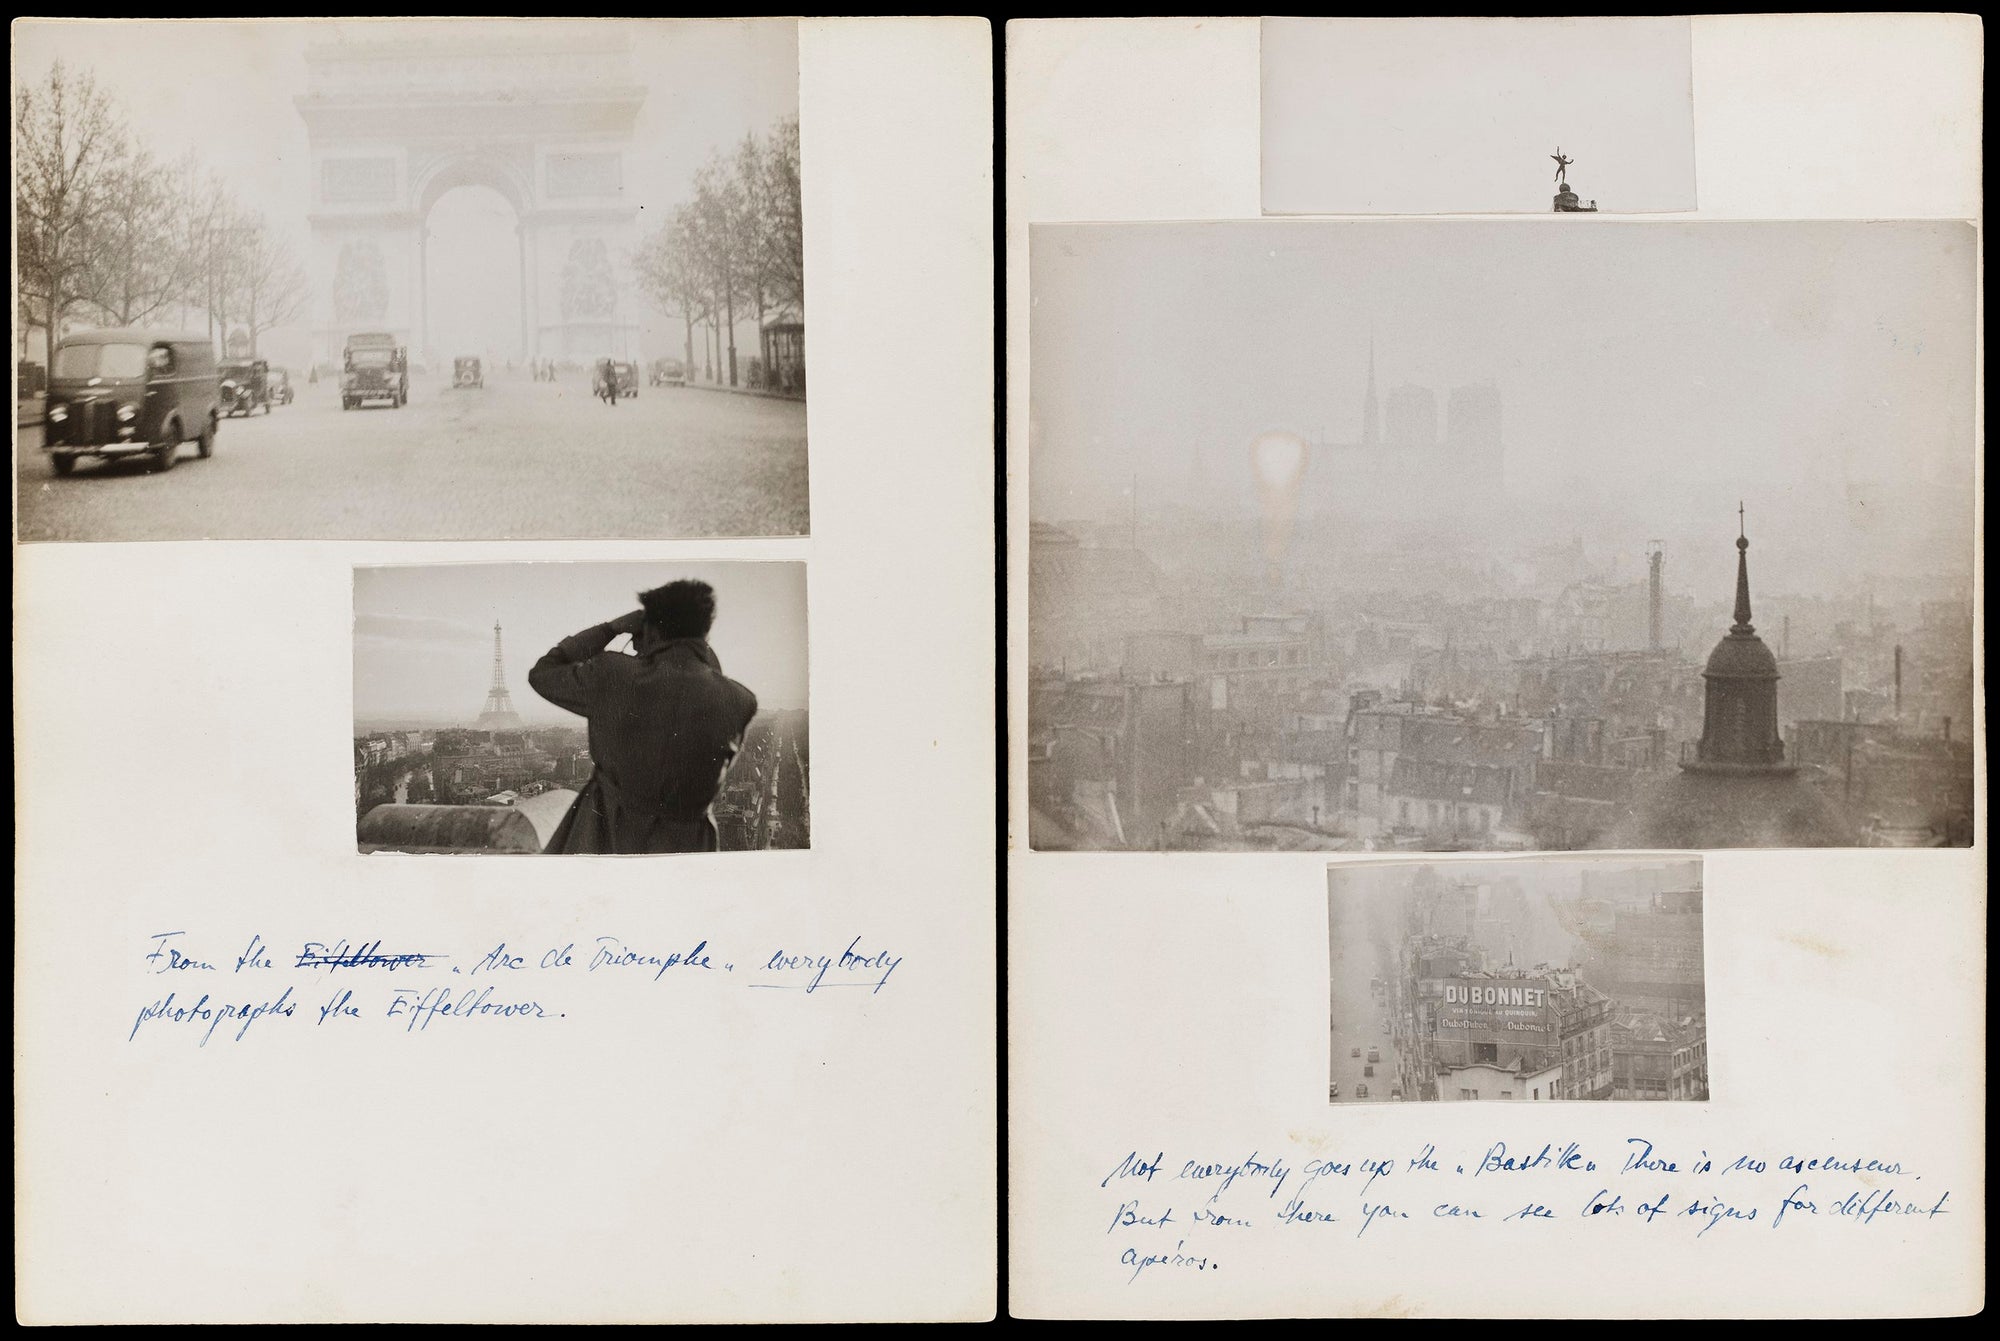 From the Eiffeltower „Arc de Triomphe„ everybody
photographs the Eiffeltower.
DUBONNET
VIN TONIQUE AU QUINQUINA
Dubo Dubon Dubonnet
Not everybody goes up the „Bastille„ There is no ascenseur.
But from there you can see lots of signs for different
apéros.